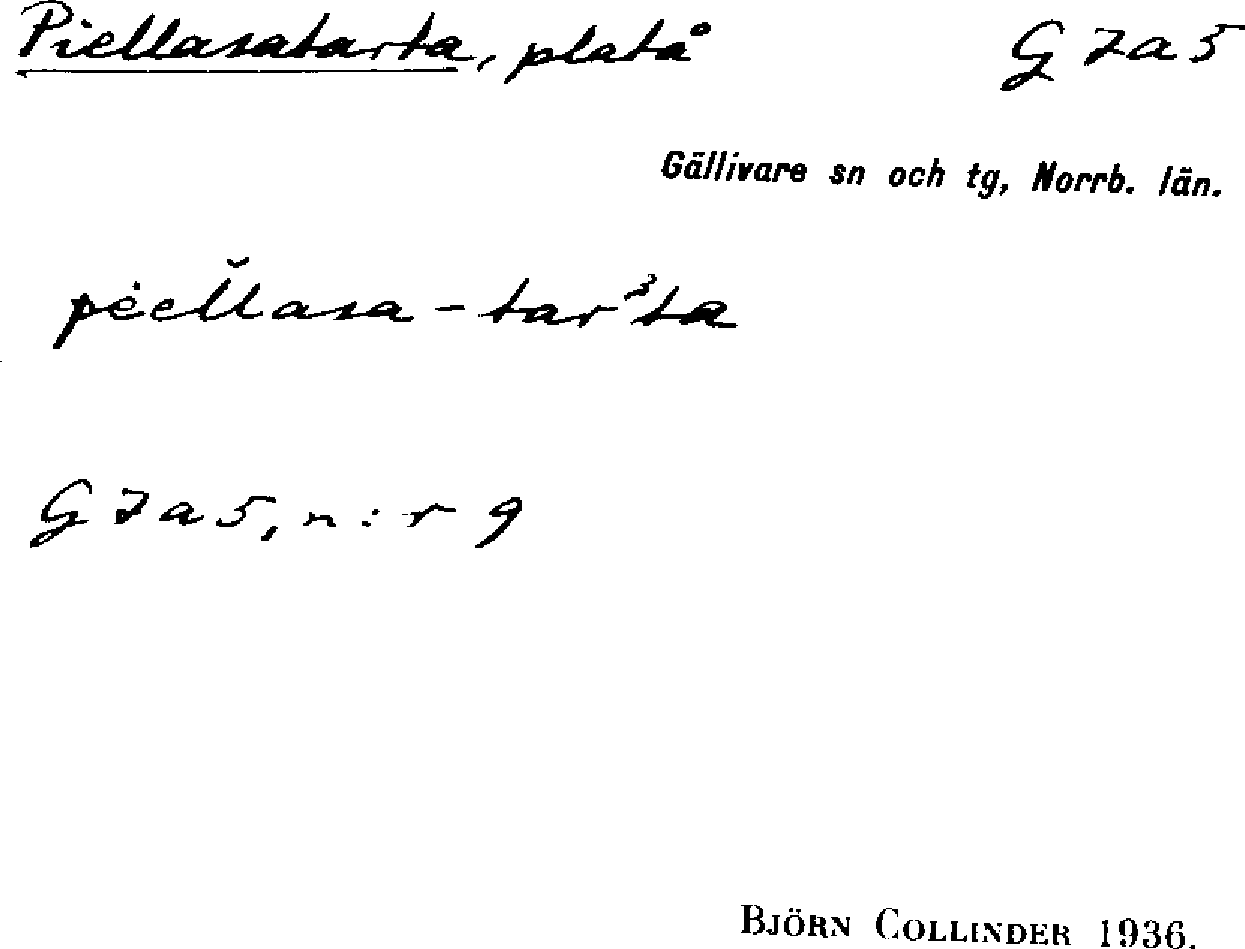 Piellasatarta, platå G 7a5
Gällivare sn och tg, Norrb. län.
pėell̆asa-tarᵌta
G 7a5, n:r 9
BJÖRN COLLINDER 1936.